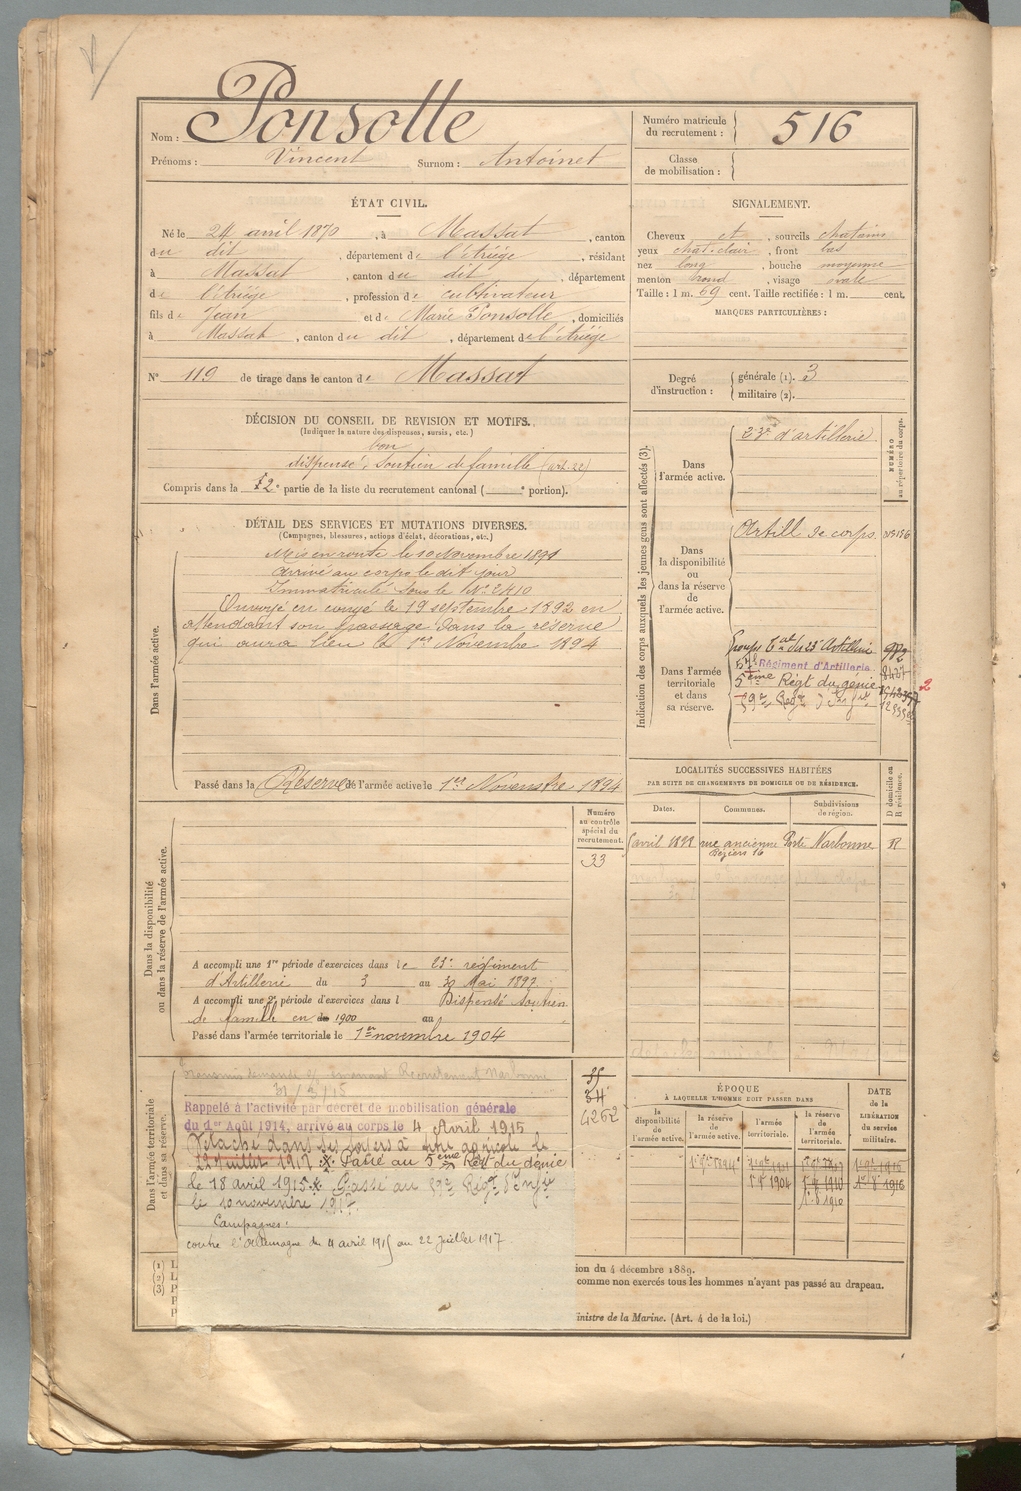 Nom : Ponsolle
Prénoms : Vincent Surnom : Antoinet
Numéro matricule du recrutement : 516
Classe de mobilisation :
ÉTAT CIVIL.
Né le 24 avril 1870, à Massat, canton
du dit, département de l'Ariège, résidant
à Massat, canton du dit, département
de l'Ariège, profession de cultivateur
fils de Jean et de Marie Ponsolle, domiciliés
à Massat, canton du dit, département de l'Ariège
N° 119 de tirage dans le canton de Massat
SIGNALEMENT.
Cheveux et, sourcils chatains
yeux chat. clair, front bas
nez long, bouche moyenne
menton rond, visage ovale
Taille : 1 m. 69 cent. Taille rectifiée : 1 m. cent.
MARQUES PARTICULIÈRES :
Degré d'instruction : générale (1). 3
militaire (2).
DÉCISION DU CONSEIL DE REVISION ET MOTIFS.
(Indiquer la nature des dispenses, sursis, etc.)
bon
dispensé, Soutien de famille (art. 22)
Compris dans la 2e partie de la liste du recrutement cantonal ( e portion).
DÉTAIL DES SERVICES ET MUTATIONS DIVERSES.
(Campagnes, blessures, actions d'éclat, décorations, etc.)
Dans l'armée active.
Mis en route le 10 Novembre 1891
arrivé au corps le dit jour
Immatriculé sous le N° 2410
Envoyé en congé le 19 septembre 1892 en
attendant son passage dans la réserve
qui aura lieu le 1er Novembre 1894
Passé dans la Réserve de l'armée active le 1er Novembre 1894
Indication des corps auxquels les jeunes gens sont affectés (3).
NUMÉRO au répertoire du corps.
Dans l'armée active.
23e d'artillerie.
Dans la disponibilité ou dans la réserve de l'armée active.
Artill de corps
Dans l'armée territoriale et dans sa réserve.
Groupe Tal du 23e Artillerie 982
5e Régiment d'Artillerie 8427
5ème Régt du génie
2
LOCALITÉS SUCCESSIVES HABITÉES
PAR SUITE DE CHANGEMENTS DE DOMICILE OU DE RÉSIDENCE.
D domicile ou R résidence.
Dates. Communes. Subdivisions de région.
avril 1899 rue ancienne Porte Narbonne R
Béziers 16
Dans la disponibilité ou dans la réserve de l'armée active.
Numéro au contrôle spécial du recrutement.
33
A accompli une 1re période d'exercices dans le 23e régiment
d'Artillerie du 3 au 30 Mai 1897
A accompli une 2e période d'exercices dans l Dispensé Soutien
de famille en 1900 au
Passé dans l'armée territoriale le 1er novembre 1904
Dans l'armée territoriale et dans sa réserve.
34
4262
Recrutement Narbonne
Rappelé à l'activité par décret de mobilisation générale
du 1er Août 1914, arrivé au corps le 4 Avril 1915
Détaché dans ses foyers à titre agricole le
22 Juillet 1917 Passé au 5ème Régt du génie
le 18 avril 1915 Passé au
le 10 novembre
Campagnes :
contre l'Allemagne du 4 avril 1915 au 22 juillet 1917
ÉPOQUE
À LAQUELLE L'HOMME DOIT PASSER DANS
la disponibilité de l'armée active. la réserve de l'armée active. l'armée territoriale. la réserve de l'armée territoriale.
DATE de la LIBÉRATION du service militaire.
(1) L
(2) L
(3) P
P
P
ion du 4 décembre 1889.
comme non exercés tous les hommes n'ayant pas passé au drapeau.
inistre de la Marine. (Art. 4 de la loi.)